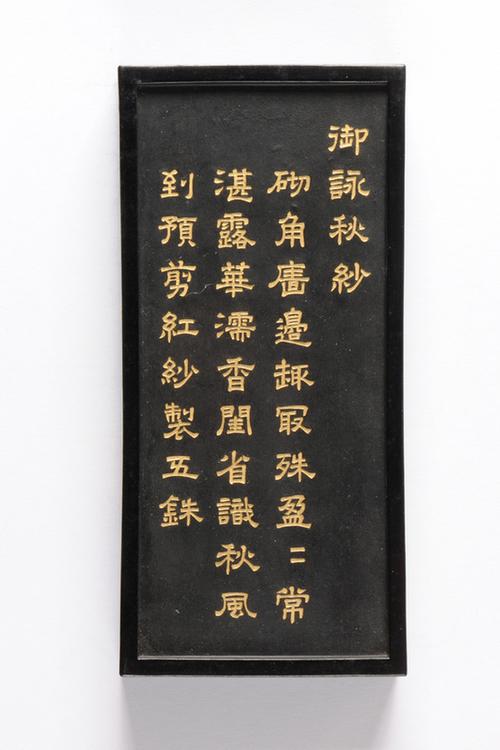 御詠秋紗
砌角廧邊趣冣殊盈〻常
湛露華濡香閨省識秋風
到預剪紅紗製五銖